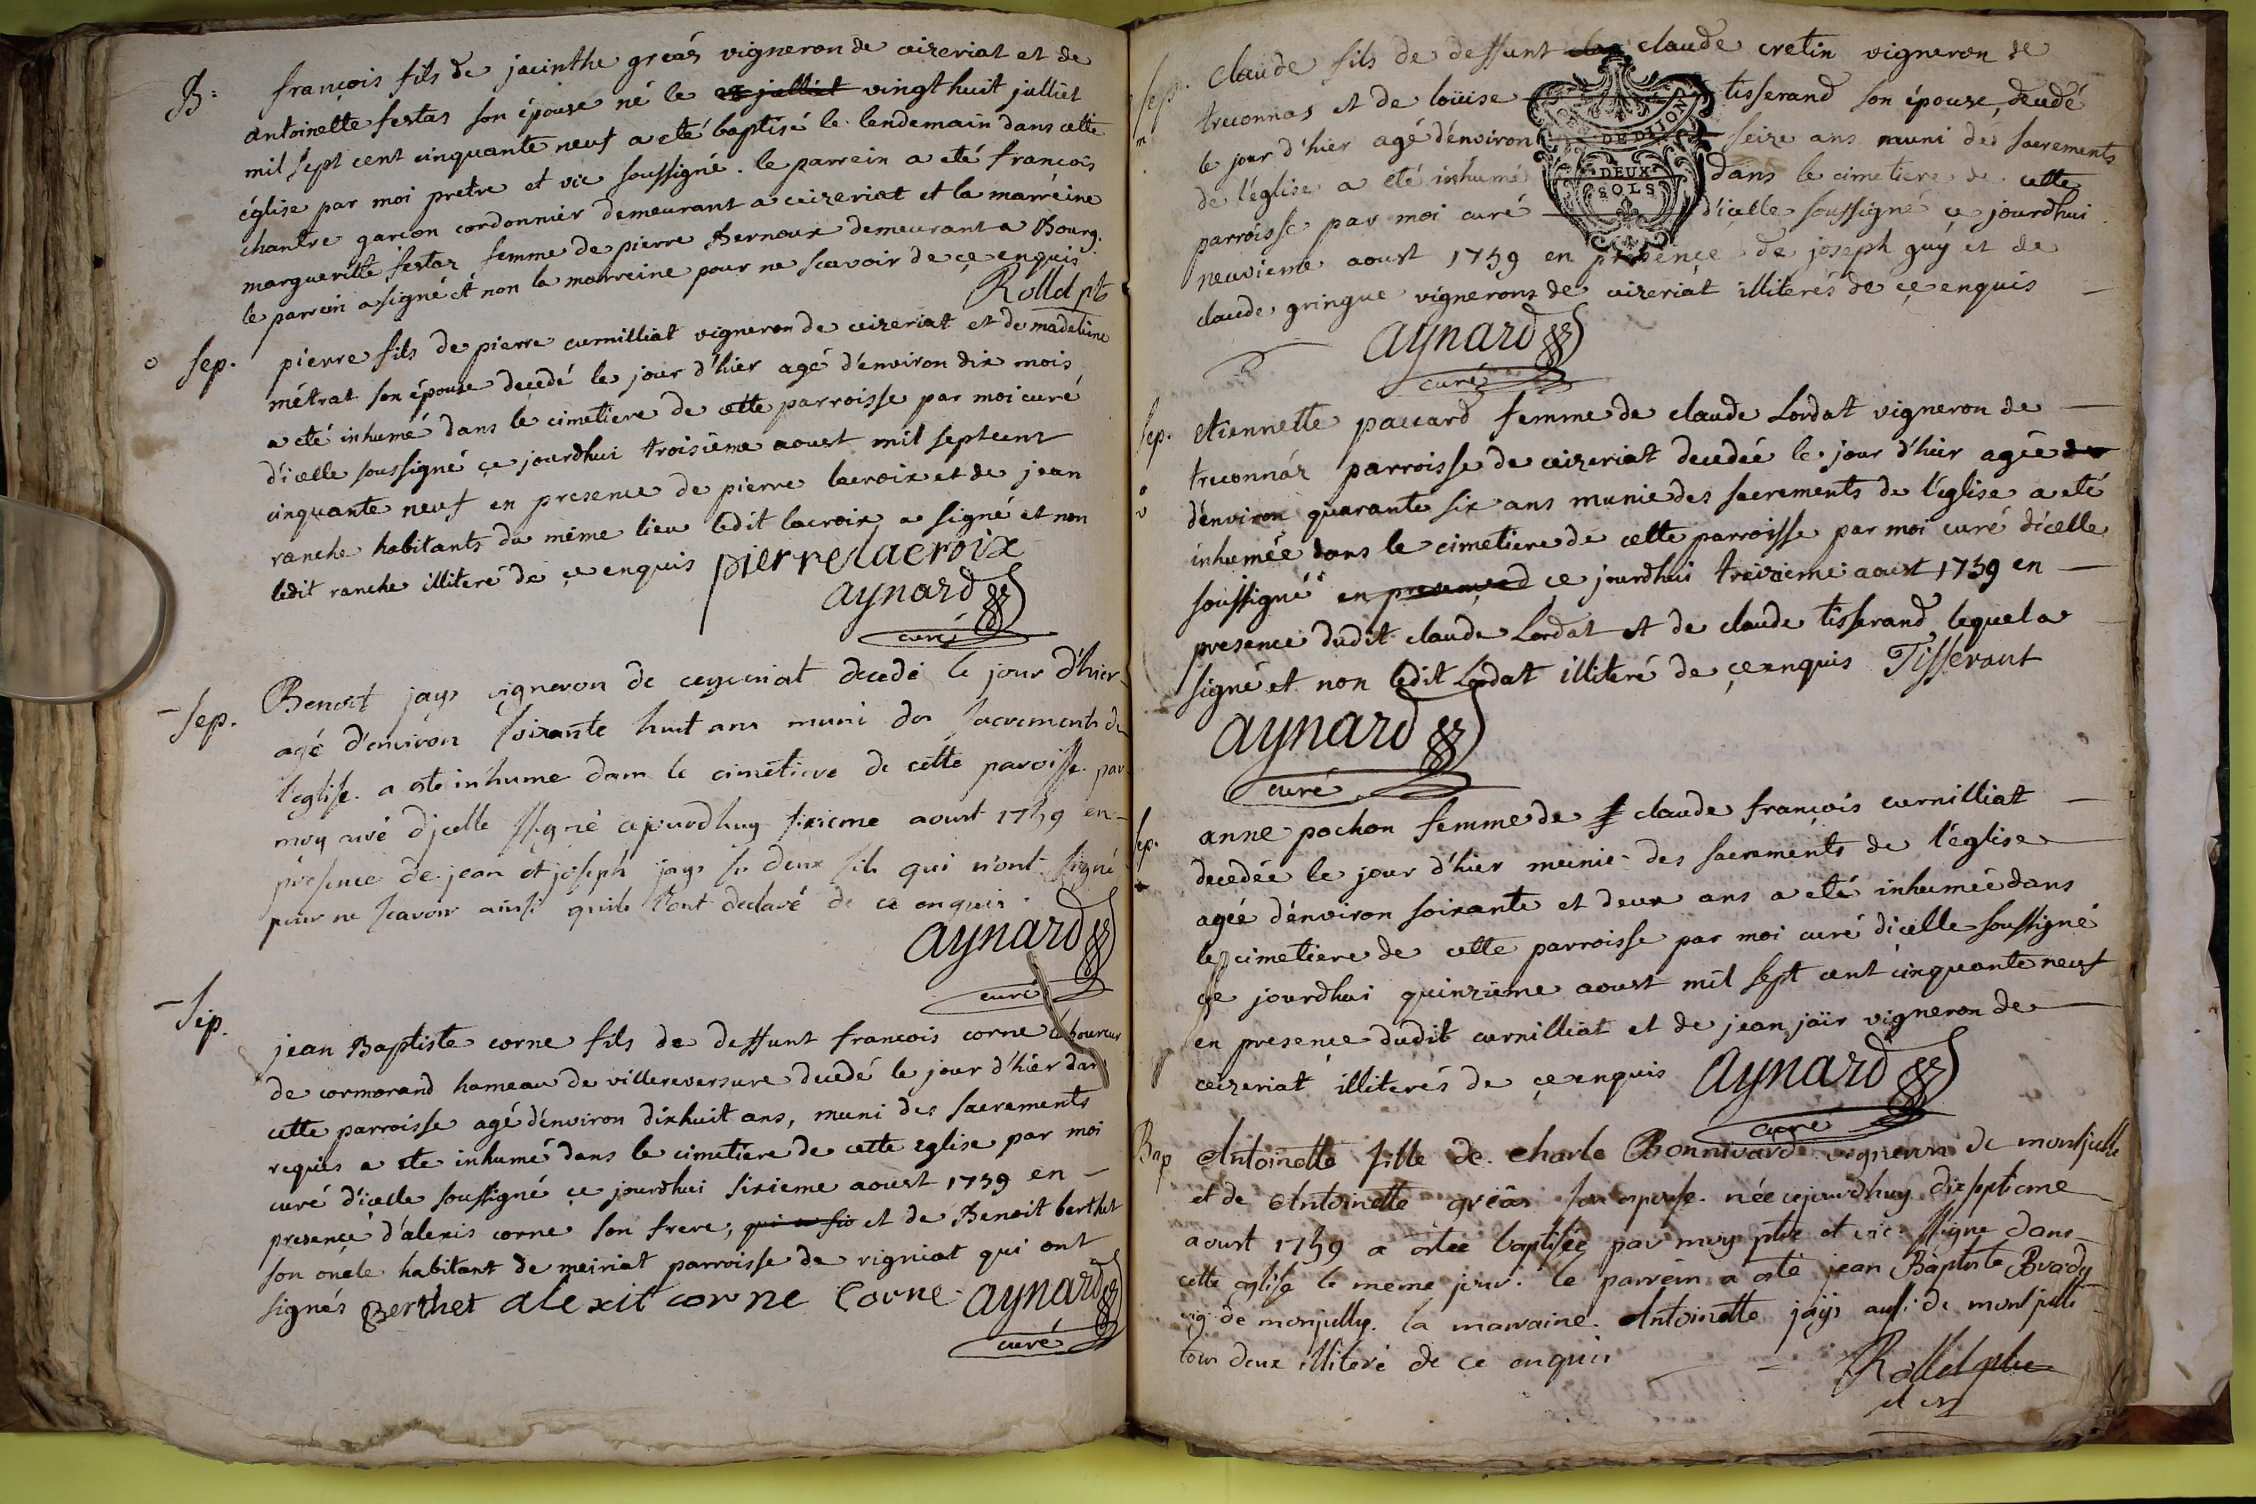 B: françois fils de jacinthe gréaz vigneron de ceizeriat et de
antoinette festas son épouse né le vingt huit julliet
mil sept cent cinquante neuf a eté baptisé le lendemain dans cette
église par moi pretre et vic soussigné. le parrein a eté francois
chantre garçon cordonnier demeurant a ceizeriat et la marréine
margueritte festaz femme de pierre Bernoux demeurant a Bourg.
le parrein a signé et non la marreine pour ne scavoir de çe enquis
Rollet ptr
sep. pierre fils de pierre curnilliat vigneron de ceizeriat et de madeleine
métrat son épouse decedé le jour d'hier agé d'environ dix mois
a eté inhumé dans le cimetiere de cette parroisse par moi curé
d'icelle soussigné çe jourdhui troisième aoust mil septcent
cinquante neuf en presence de pierre lacroix et de jean
ranche habitants du même lieu ledit lacroix a signé et non
ledit ranche illiteré de çe enquis pierre lacroix
aynard
curé
sep. Benoit jays vigneron de ceyzeriat decedé le jour d'hier
agé d'environ soixante huit ans muni des sacrements de
l'eglise a esté inhumé dans le cimetiere de cette paroisse par
moy curé d'jcelle ssigné cejourdhuy sixieme aoust 1759 en
présence de jean et joseph jays ses deux fils qui n'ont signé
pour ne scavoir ainsi quils l'ont declaré de ce enquis.
aynard
curé
sep. jean Baptiste corne fils de deffunt francois corne laboureur
de cormorand hameau de villereversure decedé le jour d'hiér dans
cette parroisse agé d'environ dixhuit ans, muni des sacrements
requies a ete inhumé dans le cimetiere de cette eglise par moi
curé d'icelle soussigné çe jourdhui sixieme aoust 1759 en
presence d'alexis corne son frere, qui a sig et de Benoit berthet
son oncle habitant de meiriat parroisse de rigniat qui ont
signés Berthet alexit corne Corne aynard
curé
sep. Claude fils de deffunt claude cretin vigneron de
treconnas et de loüise tisserand son épouse, decedé
le jour d'hier agé d'environ seize ans muni des sacrements
de l'église a eté inhumé dans le cimetiere de cette
parroisse par moi curé d'icelle soussigné çe jourdhui
neuvieme aoust 1759 en presençe de joseph guÿ et de
claude gringue vignerons de ceizeriat illiterés de çe enquis
DE DIJON
DEUX
SOLS
aynard
curé
sep. etiennette paccard femme de claude Lordat vigneron de
treconnáz parroisse de ceizeriat decedée le jour d'hier agée de
d'environ quarante six ans munie des sacrements de l'église a eté
inhumée dans le cimetiere de cette parroisse par moi curé d'icelle
soussigné en presençe d çe jourdhui treizieme aoust 1759 en
presence dudit claude Lordat et de claude tisserand lequel a
signé et non ledit Lordat illiteré de çe enquis Tisserant
aynard
curé
sep. anne pochon femme de claude françois curnilliat
decedée le jour d'hier munie des sacrements de l'église
agée d'environ soixante et deux ans a eté inhumée dans
le cimetiere de cette parroisse par moi curé dicelle soussigné
çe jourdhui quinzieme aoust mil sept cent cinquante neuf
en presence dudit curnilliat et de jean jaïr vigneron de
ceizeriat illiterés de çe enquis aynard
curé
Bap Antoinette fille de charle Bonnivard vigneron de montjulli
et de Antoinette gréas son epouse née cejourdhuy dixseptieme
aoust 1759 a estée baptisée par moy ptre et vic ssigné dans
cette eglise le meme jour. le parrein a esté jean Baptiste Brady
vig. de monjully. la marraine Antoinette jaÿs aussi de montjulli
tous deux illiteré de ce enquis
Rollet ptre
et vic